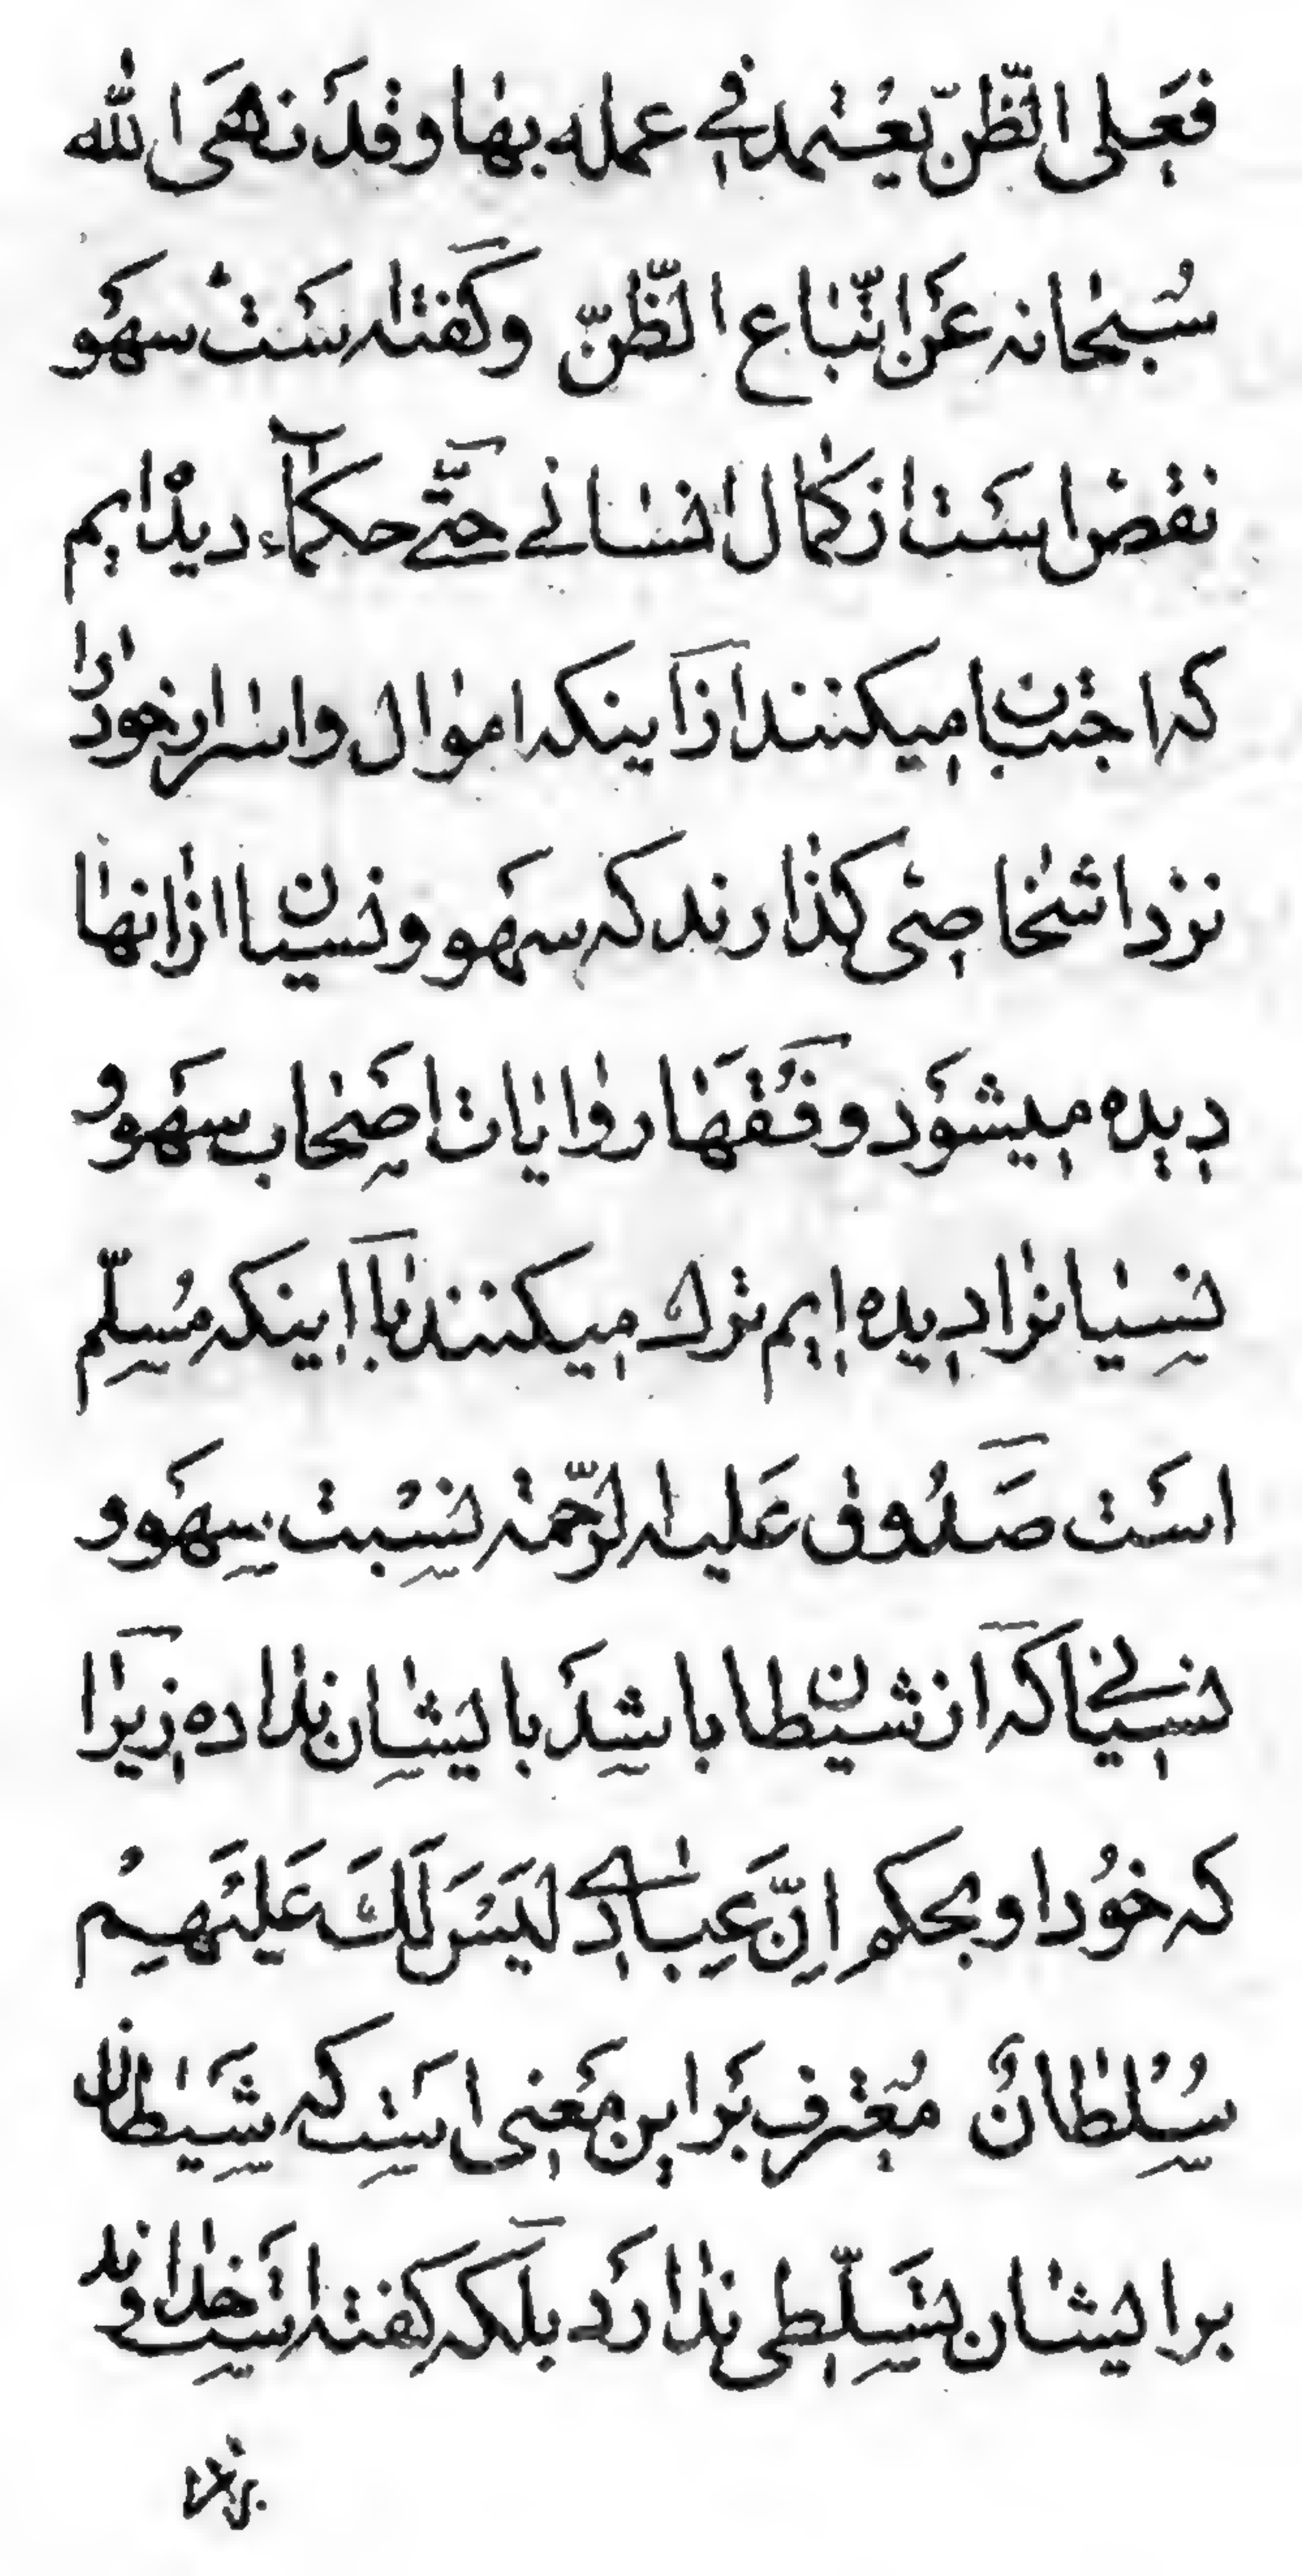 فعلی الظنّ یعتمد فی عمله بها وقد نهی الله
سبحانه عن اتّباع الظنّ وکفته ست سهو
نقص است از کمال انسانی حتّی حکمآء دیده ایم
که اجتناب میکنند از اینکه اموال و اسرار خود را
نزد اشخاصی کذارند که سهو و نسیان از آنها
دیده میشود و فقها روایات اصحاب سهو و
نسیانرا دیده ایم ترک میکنند با اینکه مسلّم
است صدوق علیه الرّحمة نسبت سهو و
نسیانی که از شیطان باشد بایشان نداده زیرا
که خود او بحکم اِنَّ عِبادی لَیْسَ لَکَ عَلَیْهِمْ
سُلْطانٌ معترف بر این معنی است که شیطان
بر ایشان تسلّطی ندارد بلکه کفته است خداوند